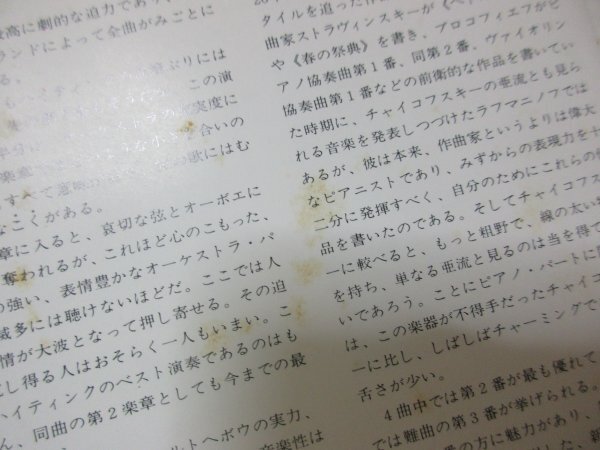 最高に劇的な迫力であっ
ランドによって全曲がみごとに
る。
この演
実度に
な小
合いの
楽章
の歌にはむ
すべて意味
なこくがある。
章に入ると、哀切な弦とオーボエに
奪われるが、これほど心のこもった、
の強い、表情豊かなオーケストラ・パ
滅多には聴けないほどだ。ここでは人
情が大波となって押し寄せる。その迫
し得る人はおそらく一人もいまい。こ
ハイティンクのベスト演奏であるのはも
ん、同曲の第2楽章としても今までの最
ルトヘボウの実力、
音楽性は
タイルを追った作
曲家ストラヴィンスキーが《ペ
や《春の祭典》を書き、プロコフィエフがピ
アノ協奏曲第1番、同第2番、ヴァイオリン
協奏曲第1番などの前衛的な作品を書いてい
た時期に、チャイコフスキーの亜流とも見ら
れる音楽を発表しつづけたラフマニノフでは
あるが、彼は本来、作曲家というよりは偉大
なピアニストであり、みずからの表現力を十
二分に発揮すべく、自分のためにこれらの作
品を書いたのである。そしてチャイコフス
ーに較べると、もっと粗野で、線の太い
を持ち、単なる亜流と見るのは当を得て
いであろう。ことにピアノ・パートに
は、この楽器が不得手だったチャイコ
ーに比し、しばしばチャーミングで
舌さが少い。
4曲中では第2番が最も優れて
では難曲の第3番が挙げられる。
番の方に魅力があり、